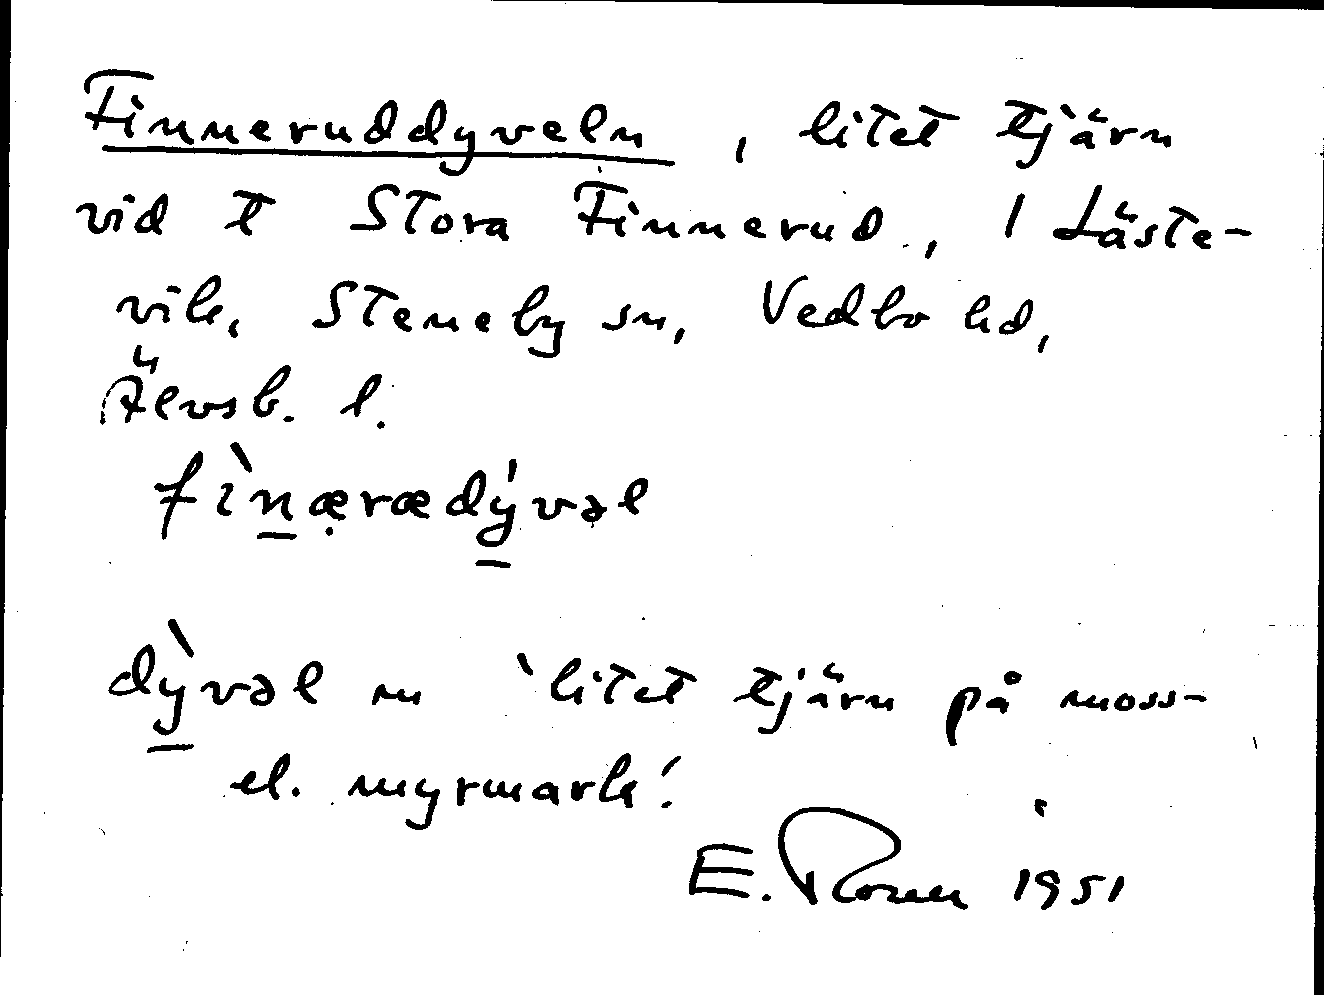 Finneruddyveln, litet tjärn
vid t Stora Finnerud, 1 Låste-
vik, Steneby sn, Vedbo hd,
Älvsb. l.
fìnærædývəl
dỳvəl m 'litet tjärn på moss-
el. myrmark'.
E. 1951